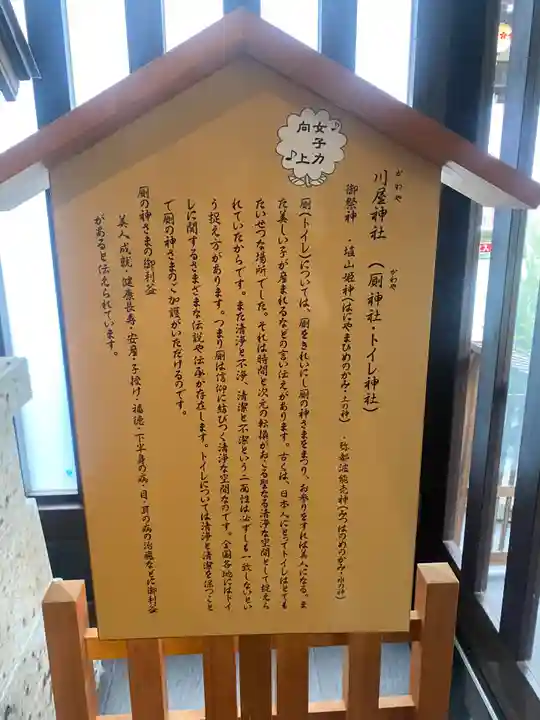 女子力
向上
かわや
川屋神社
かわや
（厠神社・トイレ神社）
御祭神　・埴山姫神（はにやまひめのかみ・土の神）　・弥都波能売神（みつはのめのかみ・水の神）
厠（トイレ）については、厠をきれいにし厠の神さまをまつり、お参りをすれば美人になる。ま
た美しい子が産まれるなどの言い伝えがあります。古くは、日本人にとってトイレはとても
たいせつな場所でした。それは時間と次元の転換がおこる聖なる清浄な空間として捉えら
れていたからです。また清浄と不浄、清潔と不潔という二面性は必ずしも一致しないとい
う捉え方があります。つまり厠は信仰に結びつく清浄な空間なのです。全国各地にはトイ
レに関するさまざまな伝説や伝承が存在します。トイレについては清浄と清潔を保つこと
で厠の神さまのご加護がいただけるのです。
厠の神さまの御利益
美人成就・健康長寿・安産・子授け・福徳・下半身の病・目・耳の病の治癒などに御利益
があると伝えられています。